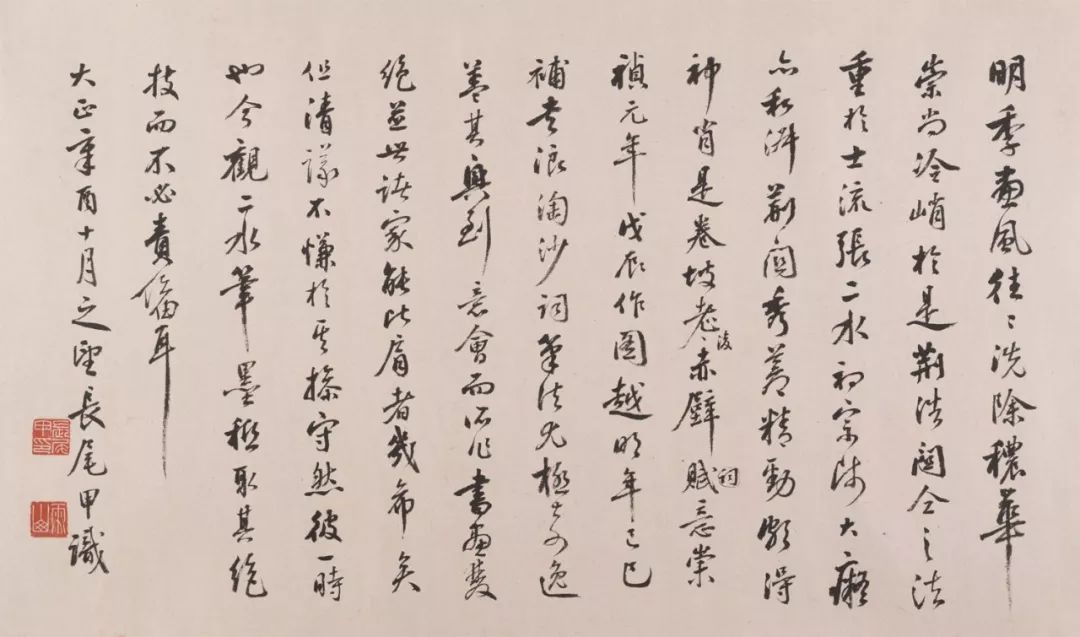 明季畫風往〻洗除穠華
崇尚冷峭於是荊浩關仝之法
重於士流張二水初宗師大癡
亦私淑荊關秀蒼精勁頗得
神肖是卷坡老後赤壁賦詞意崇
禎元年戊辰作圖越明年己巳
補書浪淘沙詞筆法尤極奇逸
蓋其興到意會而所作書畫雙
絕並世諸家能比肩者幾希矣
但清議不慊於其操守然彼一時
也今觀二水筆墨秪取其絕
技而不必責備耳
大正辛酉十月之望長尾甲識
長尾甲印
雨山